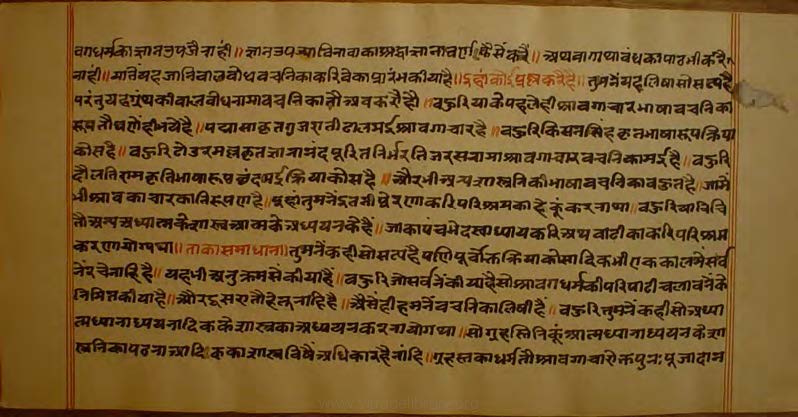 वगधर्मकाज्ञानउपजैनाही॥ज्ञानउपज्याविनावाकाश्रद्धानानावर्णकैसेकरै॥अथवागाथाबंधकापाठभीकरै
नाही॥यातैंयहजानिबालबोधवचनिकाकरिवेकाप्रारंभकीयाहै॥इहांकोईप्रश्नकरैहै॥तुमनेंयहलिषासोसत्यहै
परंतुयहग्रंथकीबालबोधनामावचनिकातौअबकरौहौ॥बहुरियाकेपहलेहीश्रावगाचारभाषावचनिका
रूपतौघणेंहीभयेहै॥पद्मसाकृतगुजरातीढालमईश्रावगाचारहै॥बहुरिकिसनसिंहकृतभाषारूपक्रिया
कोसहै॥बहुरिटोडरमल्लकृतज्ञानानंदपूरितनिर्भरनिजरसनामाश्रावगाचारवचनिकामईहै॥बहुरि
दौलतिरामकृतिभाषारूपछंदमईक्रियाकोसहै॥औरभीअन्यशास्त्रनिकीभाषावचनिकाबहुतहै॥जामें
भीश्रावकाचारकानिरूपणहै॥इहांतुमनेंइतनीप्रेरणाकरिपरिश्रमकाहेकूंकरनाथा॥बहुरियाविचि
तौअन्यअध्यात्मकेशास्त्रआत्मकेअध्ययनकेहैं॥जाकापंचमेदस्वाध्यायकरिअथवाटीकाकरिपरिश्रम
करणायोग्यथा॥ताकासमाधान॥तुमनेंकहीसोसत्यहैपणिपूर्वोक्तक्रियाकोसादिकभीएककालमेंसर्व
नेंरचेनारिहै॥यहभीअनुक्रमसेकीयाहैं॥बहुरिजोसर्वनेंकीयाहैसोश्रावगधर्मकीपरिपाटीचलावनेंके
निमित्तकीयाहै॥औरदूसरातौहेतूनाहिहै॥असेंहीहमनेंवचनिकालिषीहैं॥बहुरितुमनेंकहीसोअध्या
त्मध्यानाध्ययनादिककेशास्त्रकाअध्ययनकरनायोगथा॥सोगृहस्तिनिकूंआत्मध्यानाध्ययनकेशा
स्त्रनिकापढनाआदिककाशास्त्रविषैंअधिकारहैनांहि॥गृहस्तकाधर्मतौश्रावगाचारोक्तपुनःपूजादान